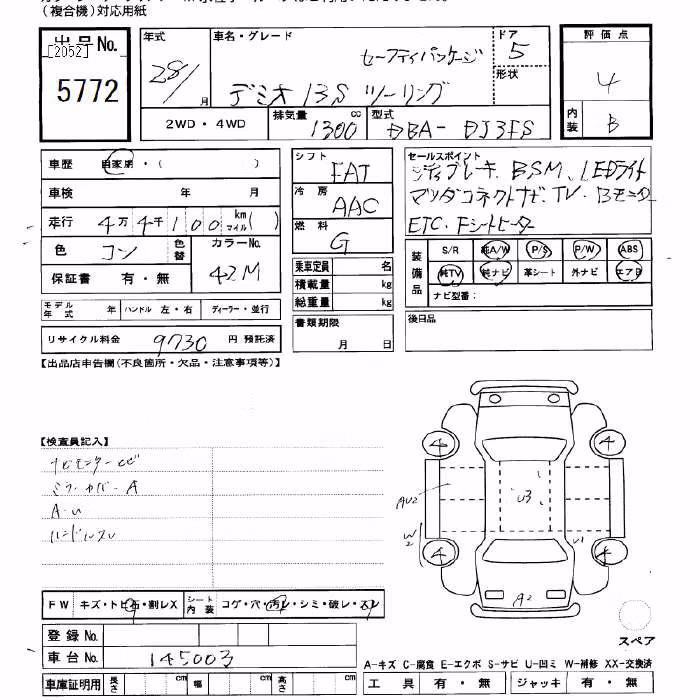 (複合機)対応用紙
出品No.
[2052]
5772
年式 車名・グレード ドア 評価点
28/ 月 セーフティパッケージ 5 4
デミオ 13S ツーリング 形状
2WD・4WD 排気量 1300 cc 型式 DBA-DJ3FS 内装 B
車歴 自家用・( )
車検 年 月
走行 4万4千100 km マイル ( )
色 コン 色替 カラーNo. 42M
保証書 有・無
モデル年式 年 ハンドル 左・右 ディーラー・並行
リサイクル料金 9730 円 預託済
シフト FAT
冷房 AAC
燃料 G
乗車定員 名
積載量 kg
総重量 kg
書類期限
月 日
セールスポイント
ブレーキ、BSM、LEDライト
マツダコネクトナビ、TV・Bモニター
ETC・Fシートヒーター
装備品 S/R 純A/W P/S P/W ABS
純TV 純ナビ 革シート 外ナビ エアB
ナビ型番:
後日品
【出品店申告欄(不良箇所・欠品・注意事項等)】
【検査員記入】
ナビモニターヒビ
ミラーカバーA
A・U
ハンドルスレ
4 4
AU2 U3
W2 U1
4 4
A2
スペア
FW キズ・トビ石・割レX シート内装 コゲ・穴・汚レ・シミ・破レ・スレ
登録No.
車台No. 145003
車庫証明用 長さ cm 幅 cm 高さ cm
A-キズ C-腐食 E-エクボ S-サビ U-凹ミ W-補修 XX-交換済
工具 有・無 ジャッキ 有・無